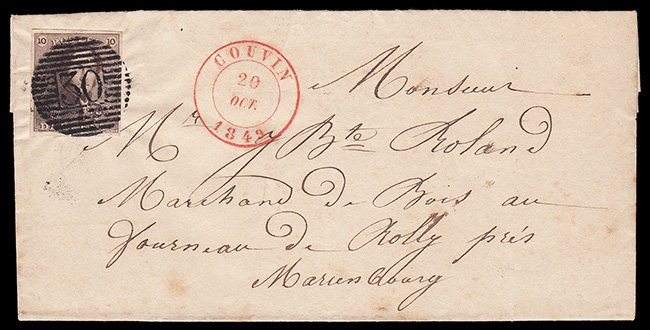 10 10
30
COUVIN
20
OCT.
1849
Monsieur
Mr J Bte Roland
Marchand de Bois au
fourneau de Rolly prés
Marienbourg